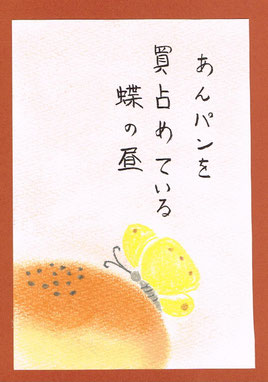 あんパンを
買占めている
蝶の昼